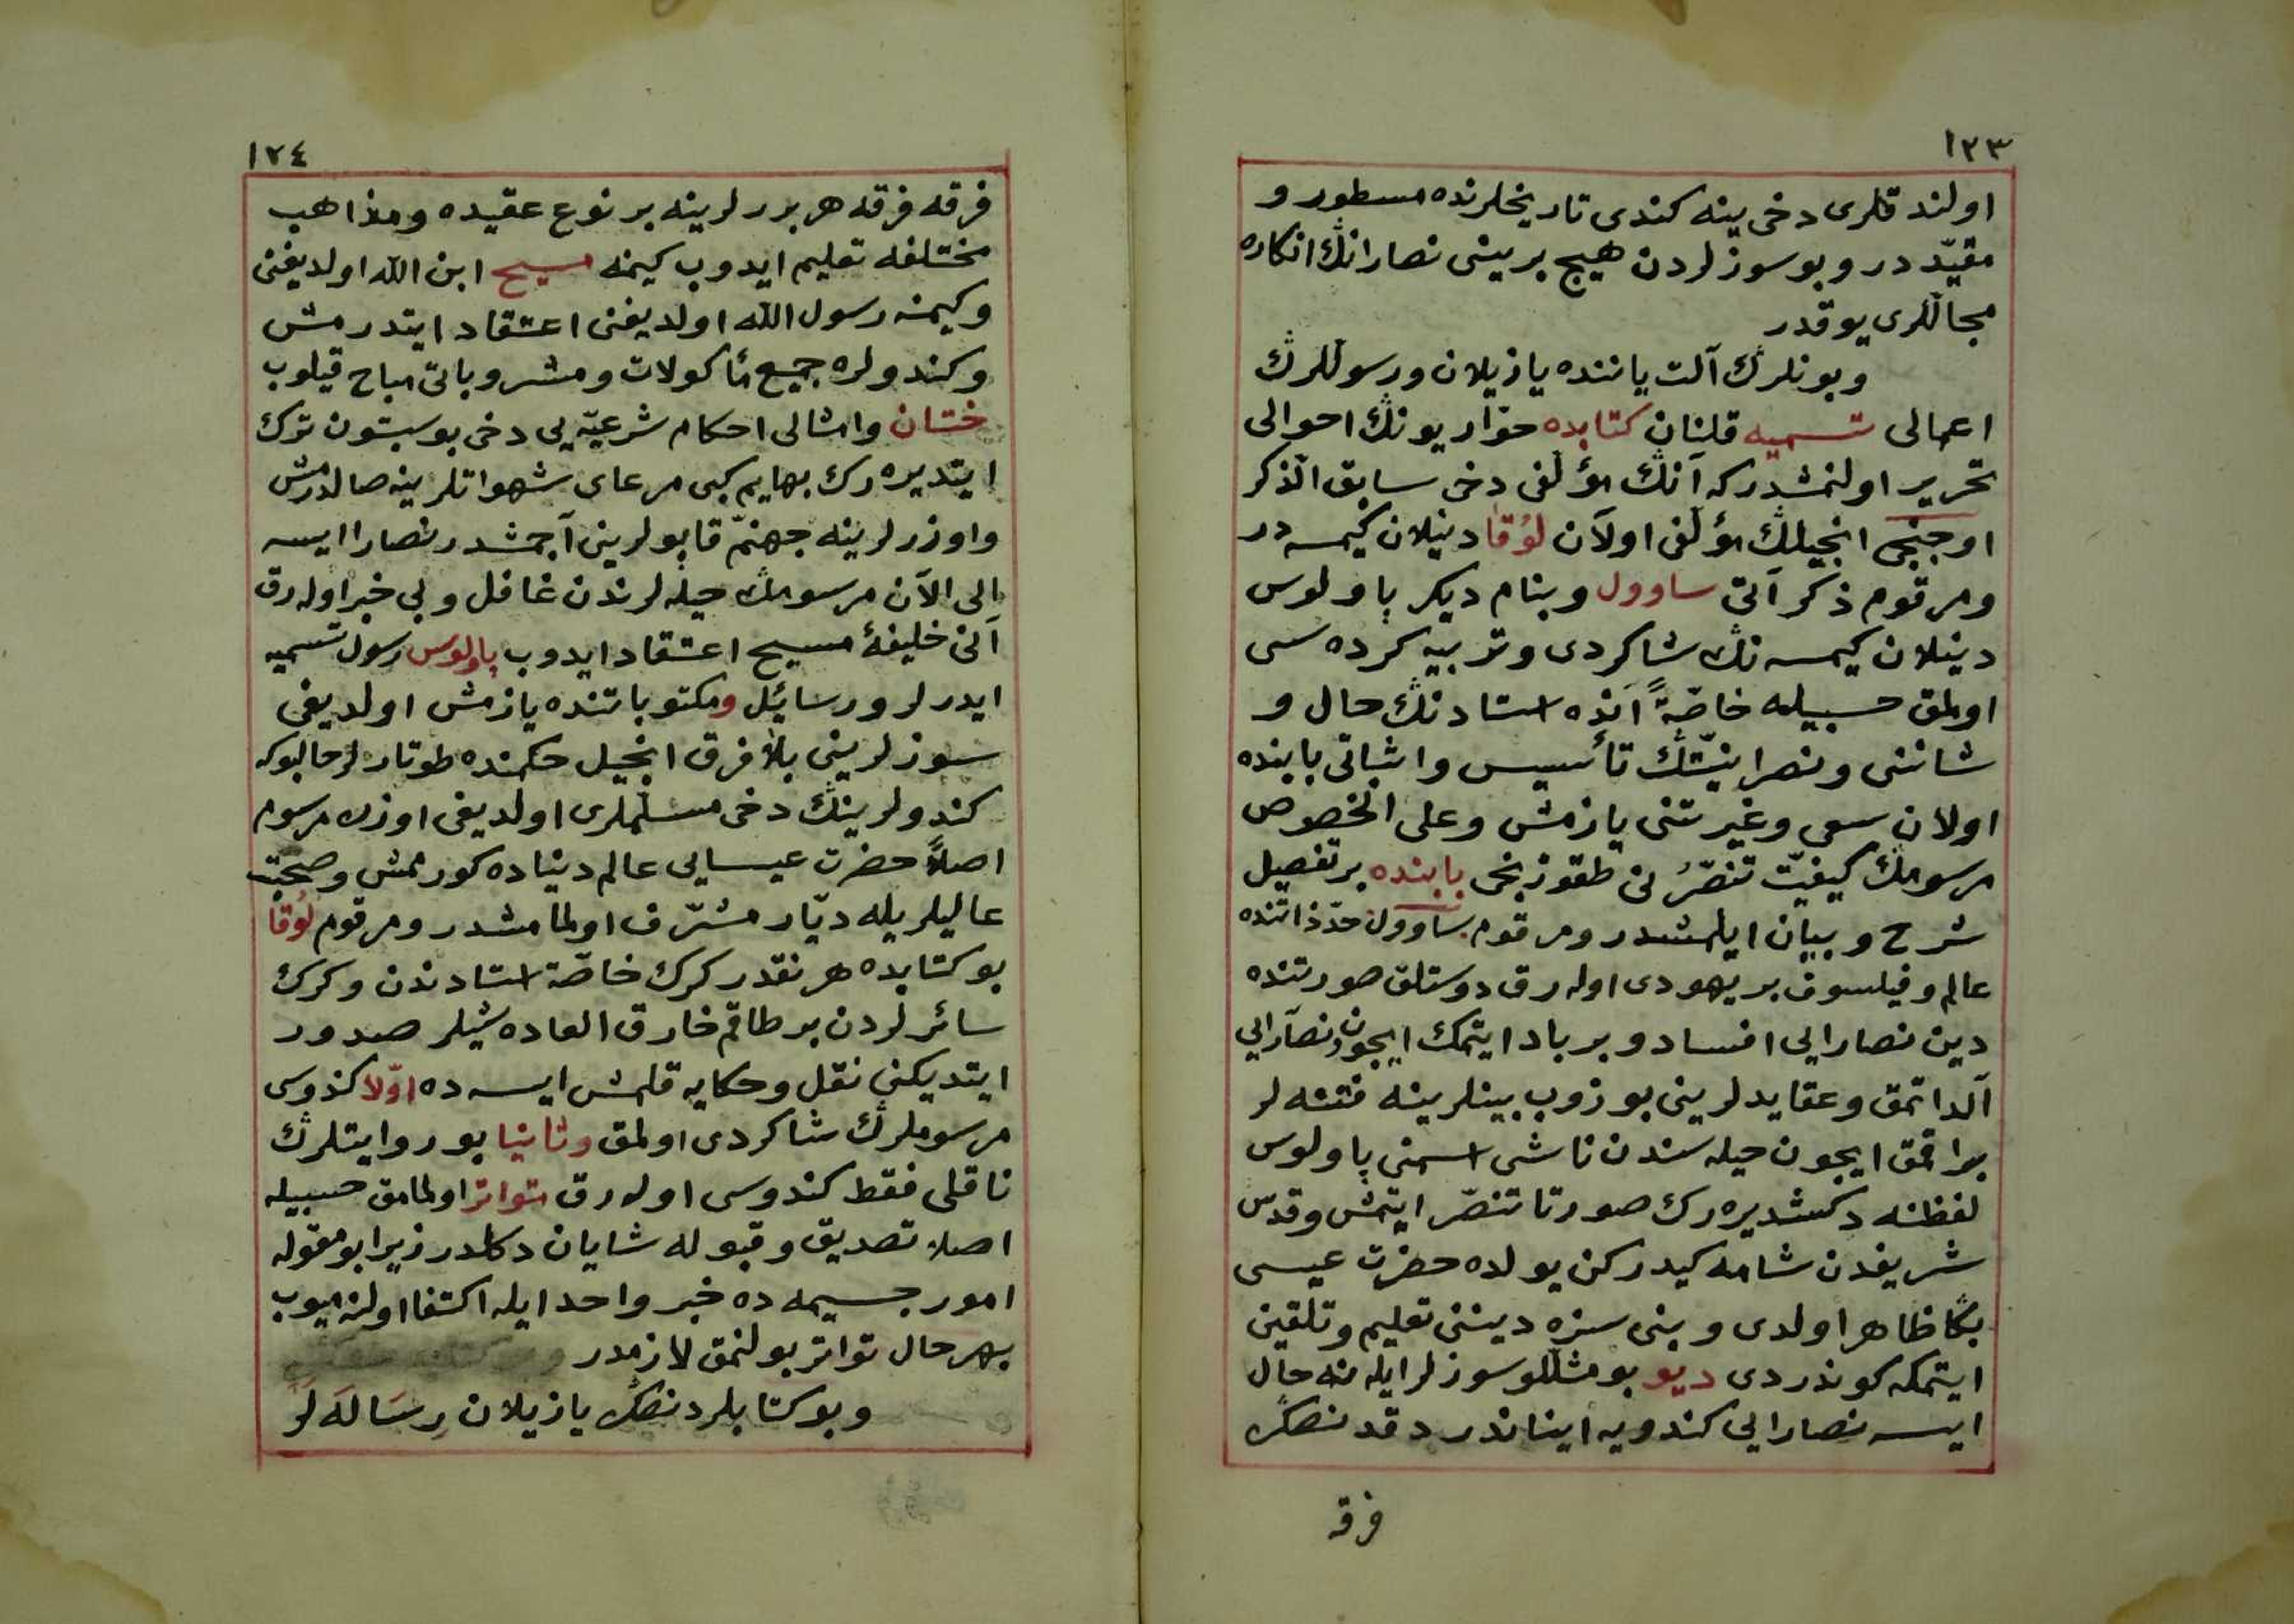 ١٢٣
اولندقلری دخی ینه کندی تاریخلرنده مسطور و
مقیّد در و بو سوزلردن هیچ بریسنی نصارانڭ انکاره
مجاللری یوقدر
وبونلرڭ آلت یاننده یازیلان ورسوللرڭ
اعمالی تسمیه قلنان کتابده حوّاریونڭ احوالی
تحریر اولنمشدر که آنڭ مؤلّفی دخی سابق الذکر
اوچنجی انجیلڭ مؤلّفی اولان لُوقا دینلان کیمسه در
ومرقوم ذکر آتی ساوول وبنام دیکر پاولوس
دینلان کیمسه نڭ شاکردی وتربیه کرده سی
اولمق حسبیله خاصّةً آنده استادنڭ حال و
شاننی ونصرانیّتڭ تأسیس واثباتی بابنده
اولان سعی وغیرتنی یازمش وعلی الخصوص
مرسومڭ کیفیّت تنصّرُنی طقوزنجی بابنده بر تفصیل
شرح و بیان ایلمشدر ومرقوم ساوول حدّ ذاتنده
عالم و فیلسوف بر یهودی اوله رق دوستلق صورتنده
دین نصارایی افساد و برباد ایتمک ایچون ونصارایی
آلداتمق وعقایدلرینی بوزوب بینلرینه فتنه لر
براقمق ایچون حیله سندن ناشی اسمنی پاولوس
لفظنه دکشدیره رک صورتا تنصّر ایتمش وقدس
شریفدن شامه کیدرکن یولده حضرت عیسی
بڭا ظاهر اولدی و بنی سزه دیننی تعلیم وتلقین
ایتمکه کوندردی دیو بومثللو سوزلر ایله نه حال
ایسه نصارایی کندویه ایناندردقدنصکره
فرقه
١٢٤
فرقه فرقه هر بررلرینه بر نوع عقیده ومذاهب
مختلفه تعلیم ایدوب کیمنه مسیح ابن الله اولدیغنی
وکیمنه رسول الله اولدیغنی اعتقاد ایتدرمش
وکندولره جمیع مأکولات ومشروباتی مباح قیلوب
ختان وامثالی احکام شرعیّه یی دخی بوسبتون ترک
ایتدیره رک بهایم کبی مرعای شهواتلرینه صالدرمش
واوزرلرینه جهنّم قاپولرینی آچمشدر نصارا ایسه
الی الآن مرسومڭ حیله لرندن غافل و بی خبر اوله رق
آنی خلیفهٔ مسیح اعتقاد ایدوب پاولوس رسول تسمیه
ایدرلر ورسائل ومکتوباتنده یازمش اولدیغی
سوزلرینی بلا فرق انجیل حکمنده طوتارلر حالبوکه
کندولرینڭ دخی مسلّملری اولدیغی اوزره مرسوم
اصلاً حضرت عیسایی عالم دنیاده کورمامش وصحبت
عالیلریله دیّار مشرّف اولمامشدر ومرقوم لُوقا
بو کتابده هر نقدر کرک خاصّة استادندن وکرک
سائرلردن بر طاقم خارق العاده شیلر صدور
ایتدیکنی نقل وحکایه قلمش ایسه ده اوّلا کندوسی
مرسوملرڭ شاکردی اولمق وثانیا بو روایتلرڭ
ناقلی فقط کندوسی اوله رق متواتر اولمامق حسبیله
اصلا تصدیق و قبوله شایان دکلدر زیرا بومقوله
امور جسیمه ده خبر واحد ایله اکتفا اولنه میوب
بهرحال تواتر بولنمق لازمدر
وبو کتابلردنصکره یازیلان رِسَالَه لَر